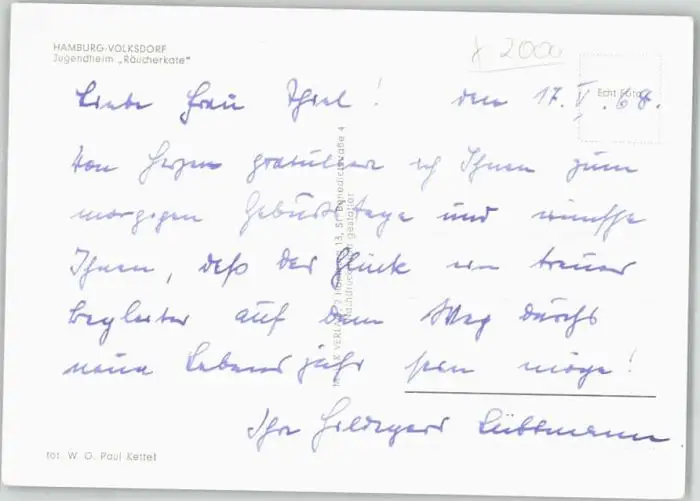 HAMBURG-VOLKSDORF
Jugendheim „Räucherkate"
2000
Echt Foto
Liebe Frau Thiel! den 17. V. 68.
Von Herzen gratuliere ich Ihnen zum
morgigen Geburtstage und wünsche
Ihnen, daß das Glück ein treuer
Begleiter auf dem Weg durchs
neue Lebensjahr sein möge!
Ihre Hildegard Lübbmann
VERLAG 2 Hamburg 13, St. Benedictstraße 4
Nachdruck nicht gestattet
fot. W. G. Paul Kettel